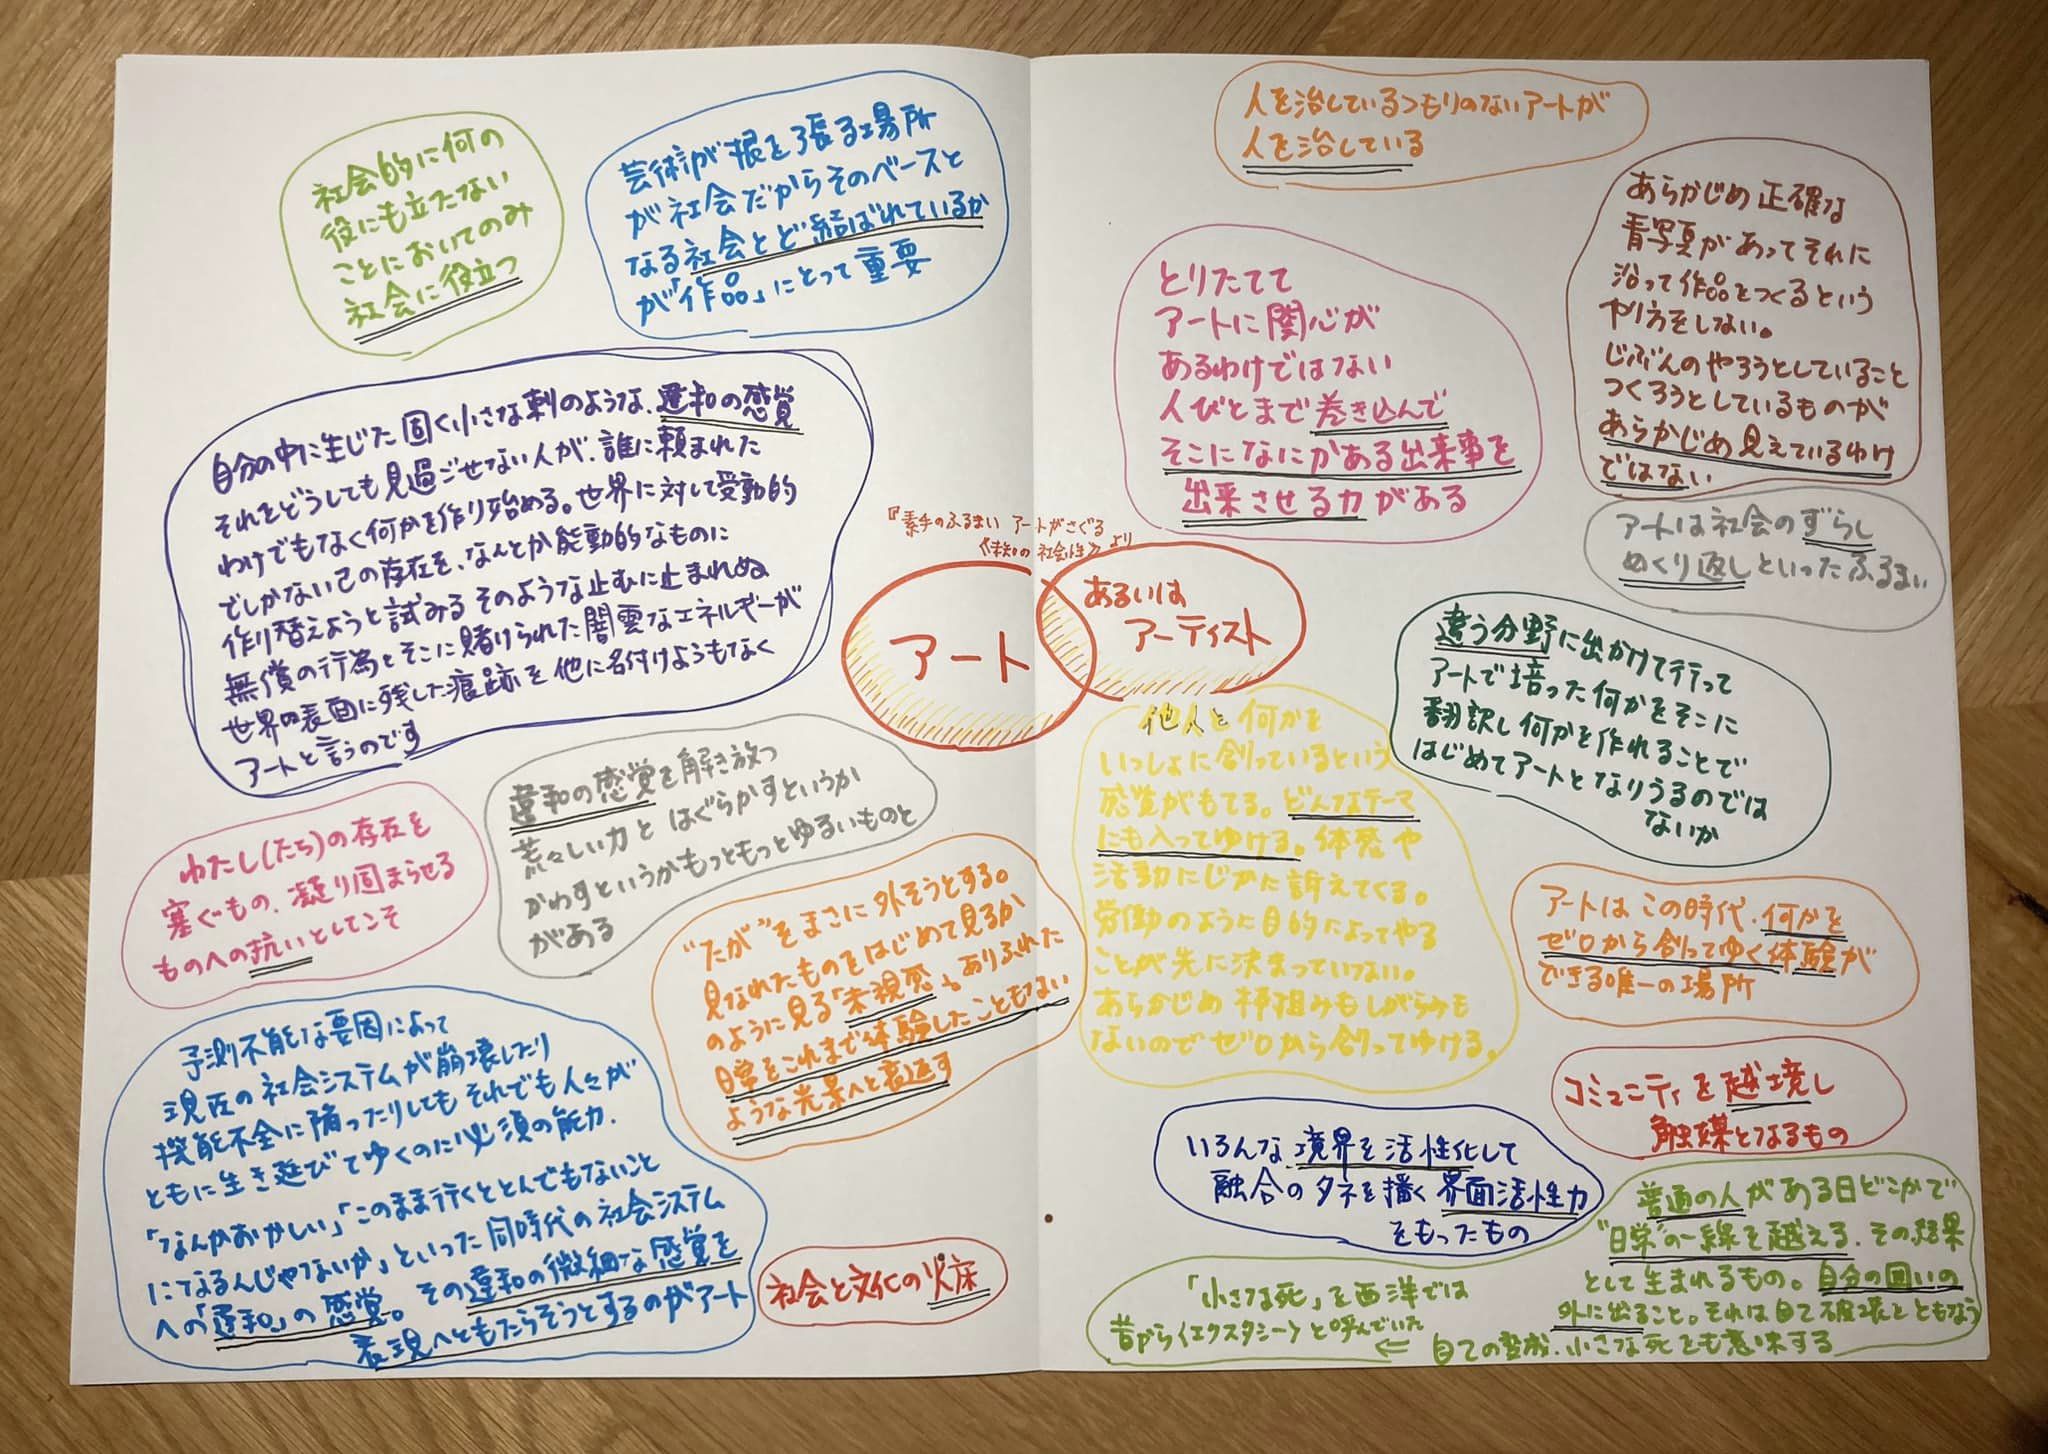 社会的に何の
役にも立たない
ことにおいてのみ
社会に役立つ
芸術が根を張る場所
が社会だからそのベースと
なる社会とど結ばれているか
が「作品」にとって重要
自分の中に生じた固く小さな刺のような、違和の感覚
それをどうしても見過ごせない人が、誰に頼まれた
わけでもなく何かを作り始める。世界に対して受動的
でしかない己の存在を、なんとか能動的なものに
作り替えようと試みるそのような止むに止まれぬ
無償の行為とそこに賭けられた闇雲なエネルギーが
世界の表面に残した痕跡を他に名付けようもなく
アートと言うのです
違和の感覚を解き放つ
荒々しい力とはぐらかすというか
かわすというかもっともっとゆるいものと
がある
わたし(たち)の存在を
塞ぐもの、凝り固まらせる
ものへの抗いとしてこそ
"たが"をまさに外そうとする。
見なれたものをはじめて見るか
のように見る「未視感」。ありふれた
日常をこれまで体験したこともない
ような光景へと裏返す
予測不能な要因によって
現在の社会システムが崩壊したり
機能不全に陥ったりしてもそれでも人々が
ともに生き延びてゆくのに必須の能力、
「なんかおかしい」「このまま行くととんでもないこと
になるんじゃないか」といった同時代の社会システム
への「違和」の感覚。その違和の微細な感覚を
表現へともたらそうとするのがアート
社会と文化の火床
『素手のふるまい アートがさぐる
《未知の社会性》』より
アート
あるいは
アーティスト
人を治しているつもりのないアートが
人を治している
とりたてて
アートに関心が
あるわけではない
人びとまで巻き込んで
そこになにかある出来事を
出来させる力がある
あらかじめ正確な
青写真があってそれに
沿って作品をつくるという
やり方をしない。
じぶんのやろうとしていること
つくろうとしているものが
あらかじめ見えているわけ
ではない
アートは社会のずらし
めくり返しといったふるまい
違う分野に出かけて行って
アートで培った何かをそこに
翻訳し何かを作れることで
はじめてアートとなりうるのでは
ないか
他人と何かを
いっしょに創っているという
感覚がもてる。どんなテーマ
にも入ってゆける。体感や
活動にじかに訴えてくる。
労働のように目的によってやる
ことが先に決まっていない。
あらかじめ枠組みもしがらみも
ないのでゼロから創ってゆける。
アートはこの時代、何かを
ゼロから創ってゆく体験が
できる唯一の場所
コミュニティを越境し
触媒となるもの
いろんな境界を活性化して
融合のタネを播く界面活性力
をもったもの
普通の人がある日どこかで
"日常"の一線を越える、その結果
として生まれるもの。自分の囲いの
外に出ること。それは自己破壊をともなう
自己の変成、小さな死をも意味する
「小さな死」を西洋では
昔から〈エクスタシー〉と呼んでいた ⇐